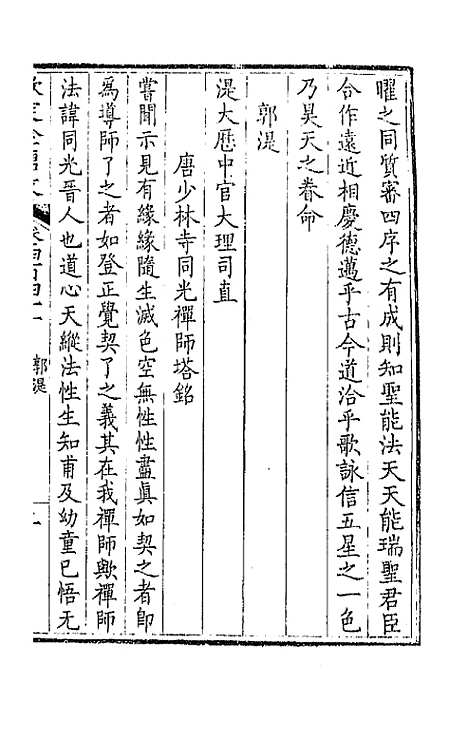 曜之同質審四序之有成則知聖能法天天能瑞聖君臣
合作遠近相慶德邁乎古今道洽乎歌詠信五星之一色
乃昊天之眷命
郭湜
湜大歷中官大理司直
唐少林寺同光禪師塔銘
嘗聞示見有緣緣隨生滅色空無性性盡真如契之者卽
為導師了之者如登正覺契了之義其在我禪師歟禪師
法諱同光晉人也道心天縱法性生知甫及幼童已悟无
欽定全唐文 卷四百四十一 郭湜